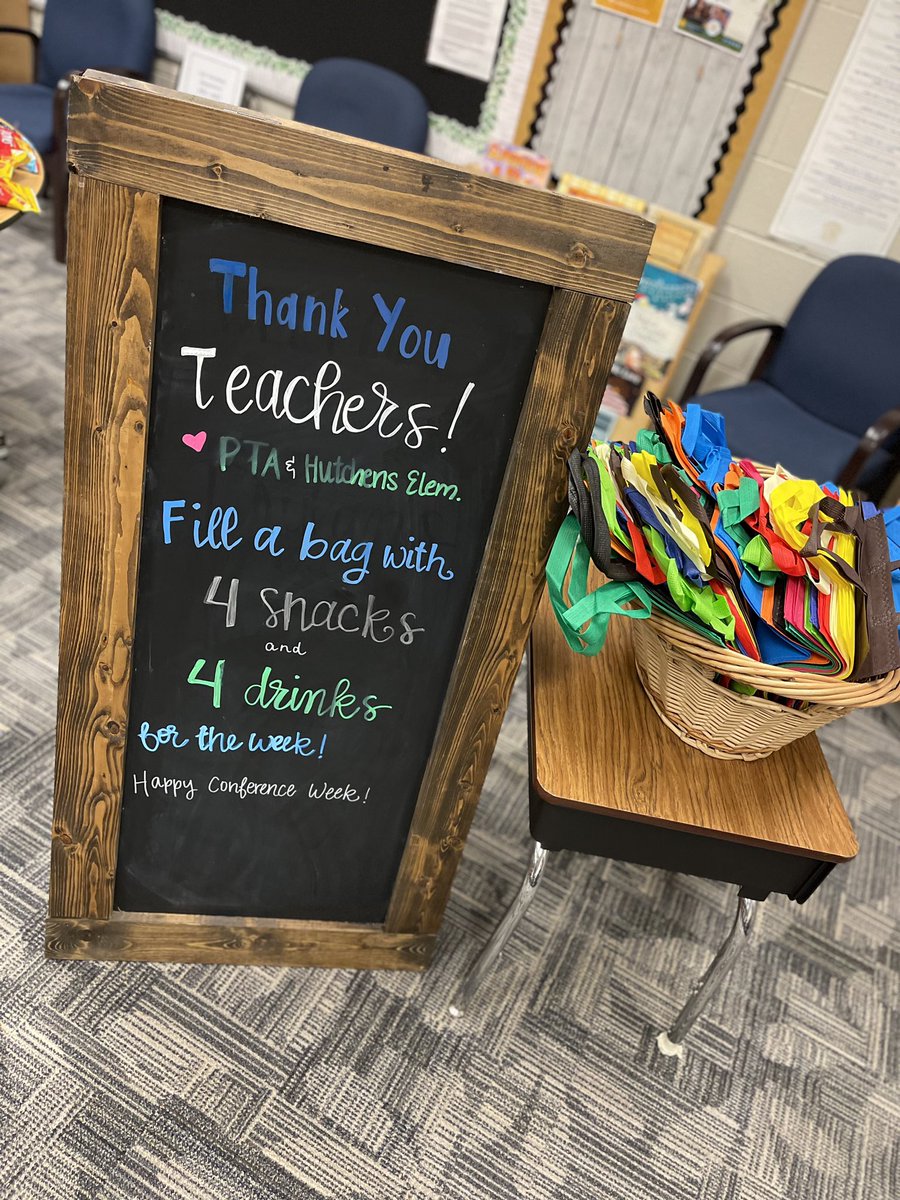 Thank You
Teachers!
PTA & Hutchens Elem.
Fill a bag with
4 snacks
and
4 drinks
for the week!
Happy Conference Week!